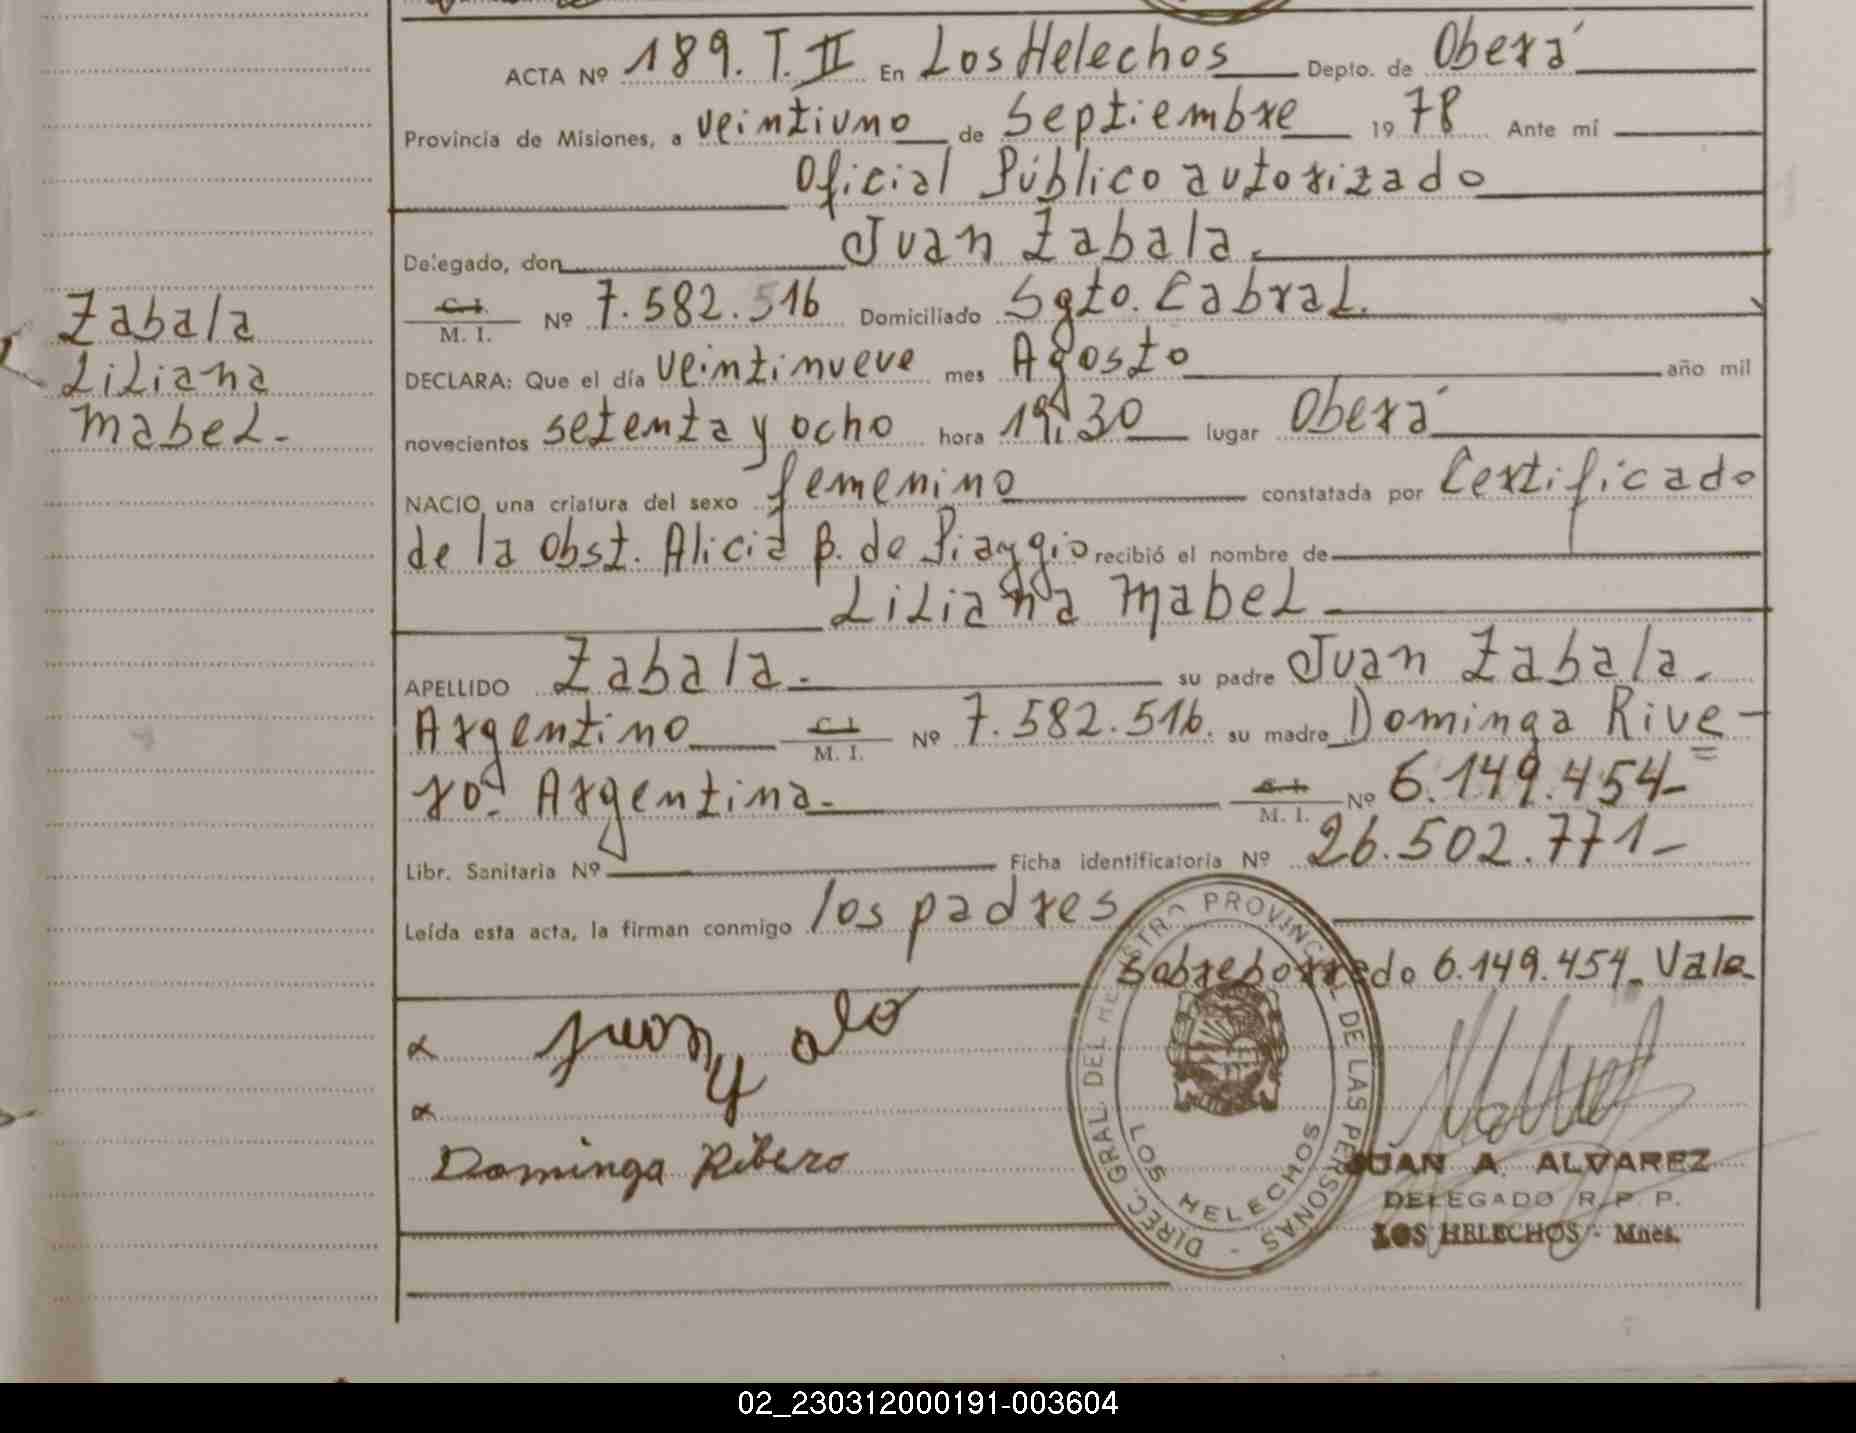 ACTA Nº 189. T. II En Los Helechos Depto. de Oberá
Provincia de Misiones, a veintiuno de Septiembre 1978 Ante mí
Oficial Público autorizado
Delegado, don Juan Zabala.
C. I.
M. I. Nº 7.582.516 Domiciliado Sgto. Cabral.
DECLARA: Que el día veintinueve mes Agosto año mil
novecientos setenta y ocho hora 19,30 lugar Oberá
NACIO una criatura del sexo femenino constatada por Certificado
de la Obst. Alicia B. de Piaggio recibió el nombre de
Liliana Mabel
APELLIDO Zabala. su padre Juan Zabala.
Argentino C. I.
M. I. Nº 7.582.516. su madre Dominga Rive-
ro. Argentina. C. I.
M. I. Nº 6.149.454-
Libr. Sanitaria Nº Ficha identificatoria Nº 26.502.771-
Leída esta acta, la firman conmigo los padres
Sobreborrado 6.149.454- Vale
Zabala
Liliana
Mabel-
Dominga Ribero
DIREC. GRAL. DEL REGISTRO PROVINCIAL DE LAS PERSONAS -
LOS HELECHOS
JUAN A. ALVAREZ
DELEGADO R. P. P.
LOS HELECHOS - Mnes.
02_230312000191-003604